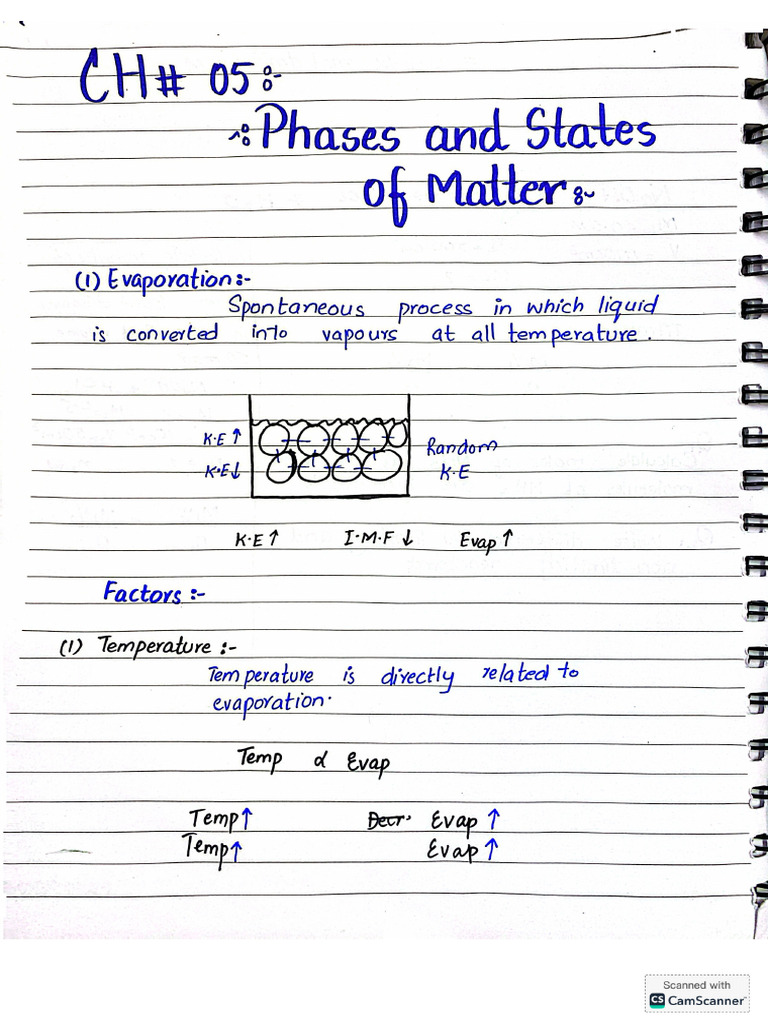 CH# 05:-
~: Phases and States
of Matter:~
(1) Evaporation:-
Spontaneous process in which liquid
is converted into vapours at all temperature.
K.E ↑
K.E ↓
Random
K.E
K.E ↑ I.M.F ↓ Evap ↑
Factors :-
(1) Temperature :-
Temperature is directly related to
evaporation.
Temp α Evap
Temp ↑ Decr. Evap ↑
Temp ↑ Evap ↑
Scanned with
CS CamScanner